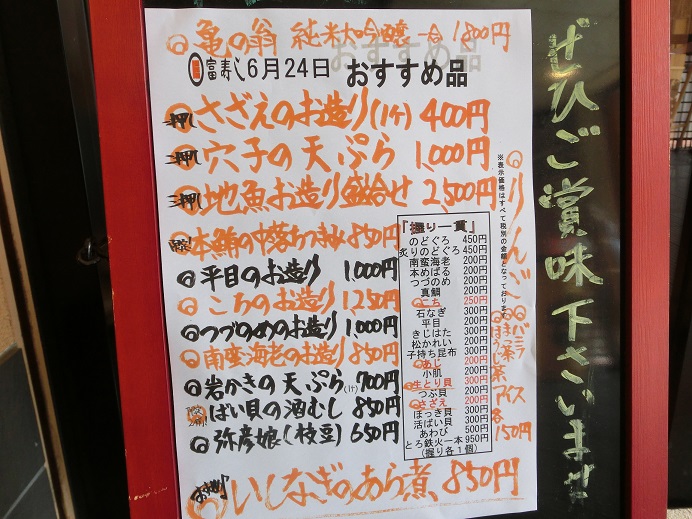 亀の翁 純米大吟醸 一合 1800円
富寿し 6月24日 おすすめ品
一押し さざえのお造り(1ケ) 400円
二押し 穴子の天ぷら 1,000円
三押し 地魚お造り盛合せ 2,500円
本鮪の中落ち 850円
平目のお造り 1,000円
こちのお造り 1,250円
つづのめのお造り 1,000円
南蛮海老のお造り 850円
岩かきの天ぷら(1ケ) 700円
ばい貝の酒むし 850円
弥彦娘(枝豆) 650円
いしなぎのあら煮 850円
『握り一貫』
のどぐろ 450円
炙りのどぐろ 450円
南蛮海老 200円
本めばる 200円
つづのめ 200円
真鯛 200円
こち 250円
石なぎ 300円
平目 200円
きじはた 300円
松かれい 200円
子持ち昆布 300円
あじ 200円
小肌 200円
生とり貝 300円
つぶ貝 200円
さざえ 200円
ほっき貝 300円
活ばい貝 300円
あわび 500円
とろ鉄火一本 950円
(握り各1個)
※表示価格はすべて税別の金額となっております。
りんご
バニラ
まっ茶
ほうじ茶
アイス
各150円
ぜひご賞味下さいませ